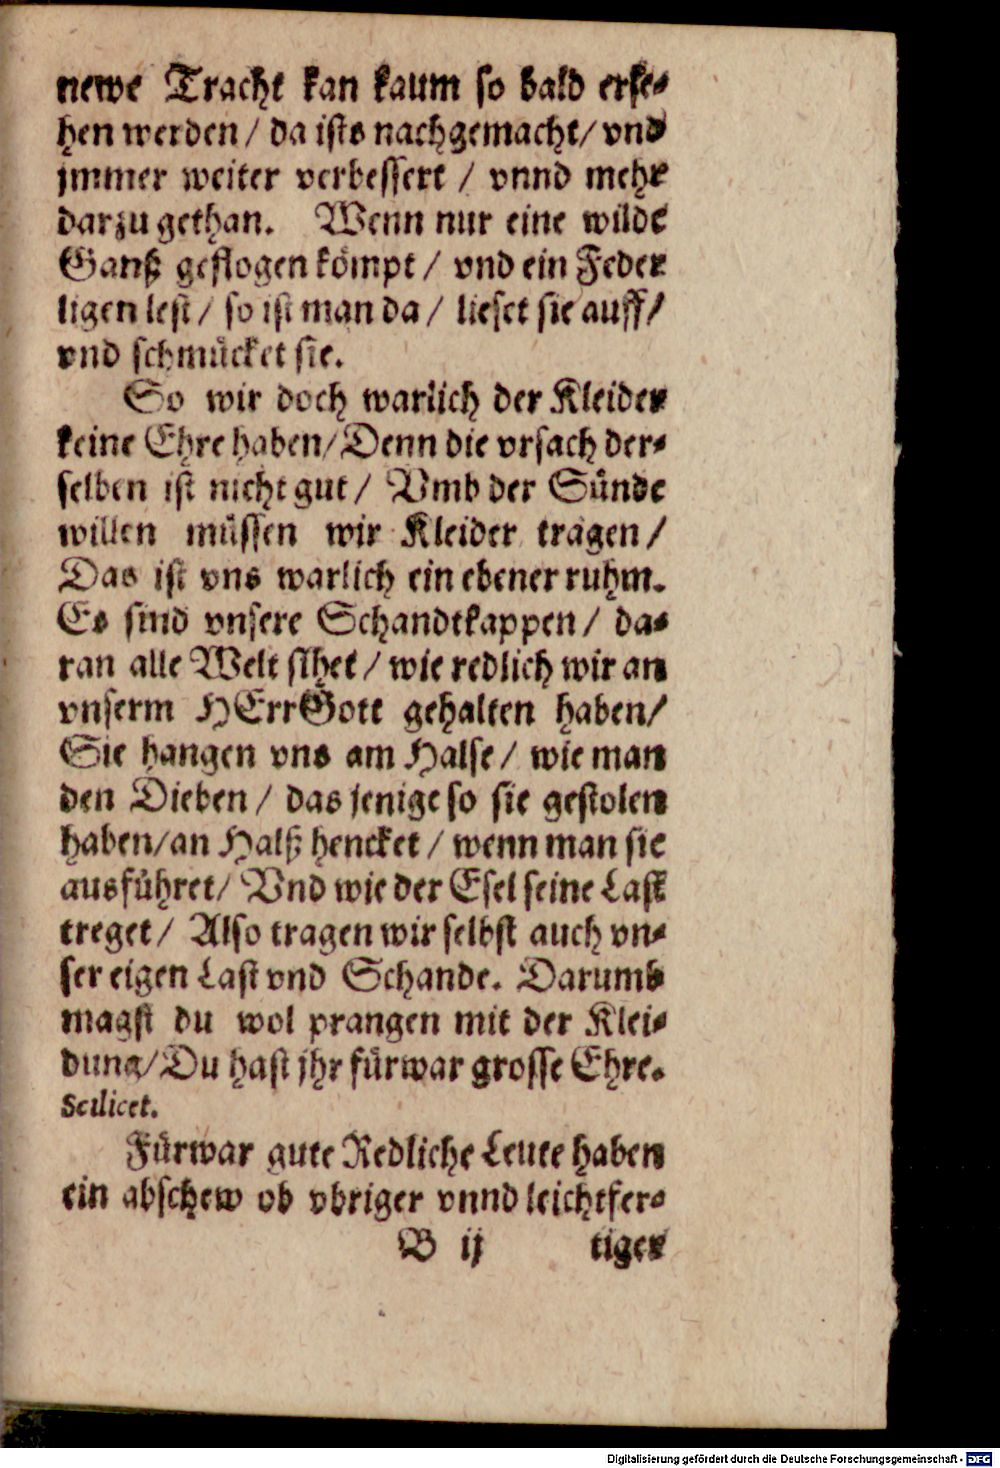 newe Tracht kan kaum so bald erse-
hen werden / da ists nachgemacht / vnd
jmmer weiter verbessert / vnnd mehr
darzu gethan. Wenn nur eine wilde
Ganß geflogen kömpt / vnd ein Feder
ligen lest / so ist man da / lieset sie auff /
vnd schmücket sie.
So wir doch warlich der Kleider
keine Ehre haben / Denn die vrsach der-
selben ist nicht gut / Vmb der Sünde
willen müssen wir Kleider tragen /
Das ist vns warlich ein ebener ruhm.
Es sind vnsere Schandtkappen / da-
ran alle Welt sihet / wie redlich wir an
vnserm HErrGott gehalten haben /
Sie hangen vns am Halse / wie man
den Dieben / das jenige so sie gestolen
haben / an Halß hencket / wenn man sie
ausführet / Vnd wie der Esel seine Last
treget / Also tragen wir selbst auch vn-
ser eigen Last vnd Schande. Darumb
magst du wol prangen mit der Klei-
dung / Du hast jhr fürwar grosse Ehre.
Scilicet.
Fürwar gute Redliche Leute haben
ein abschew ob vbriger vnnd leichtfer-
B ij tiger
Digitalisierung gefördert durch die Deutsche Forschungsgemeinschaft - DFG